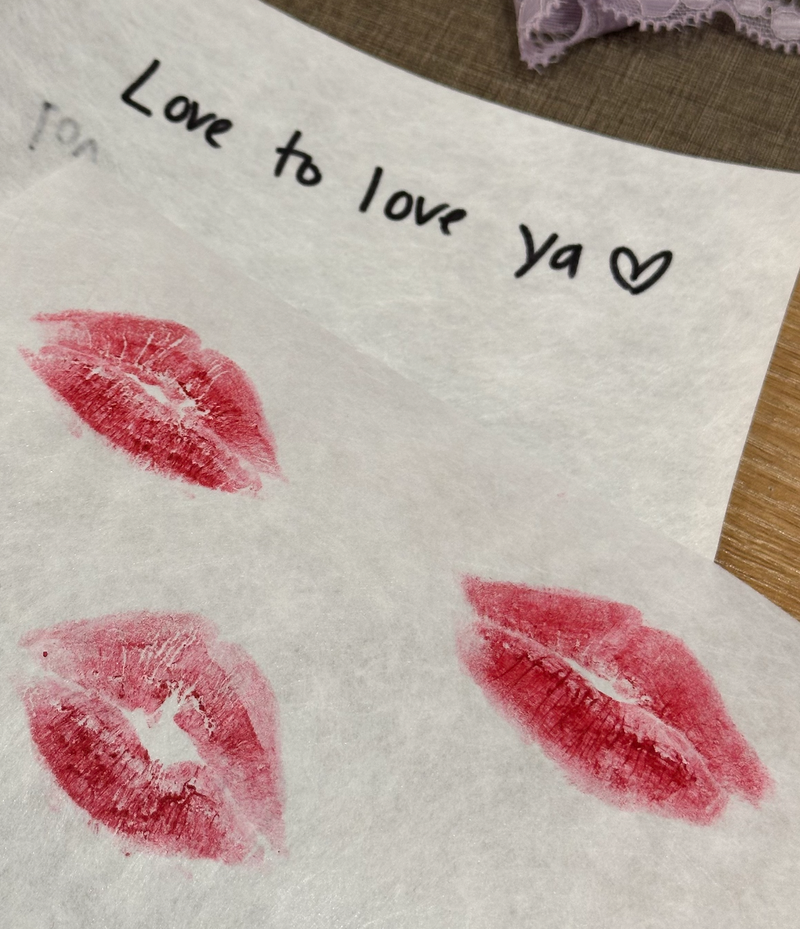 Love to love ya ♡